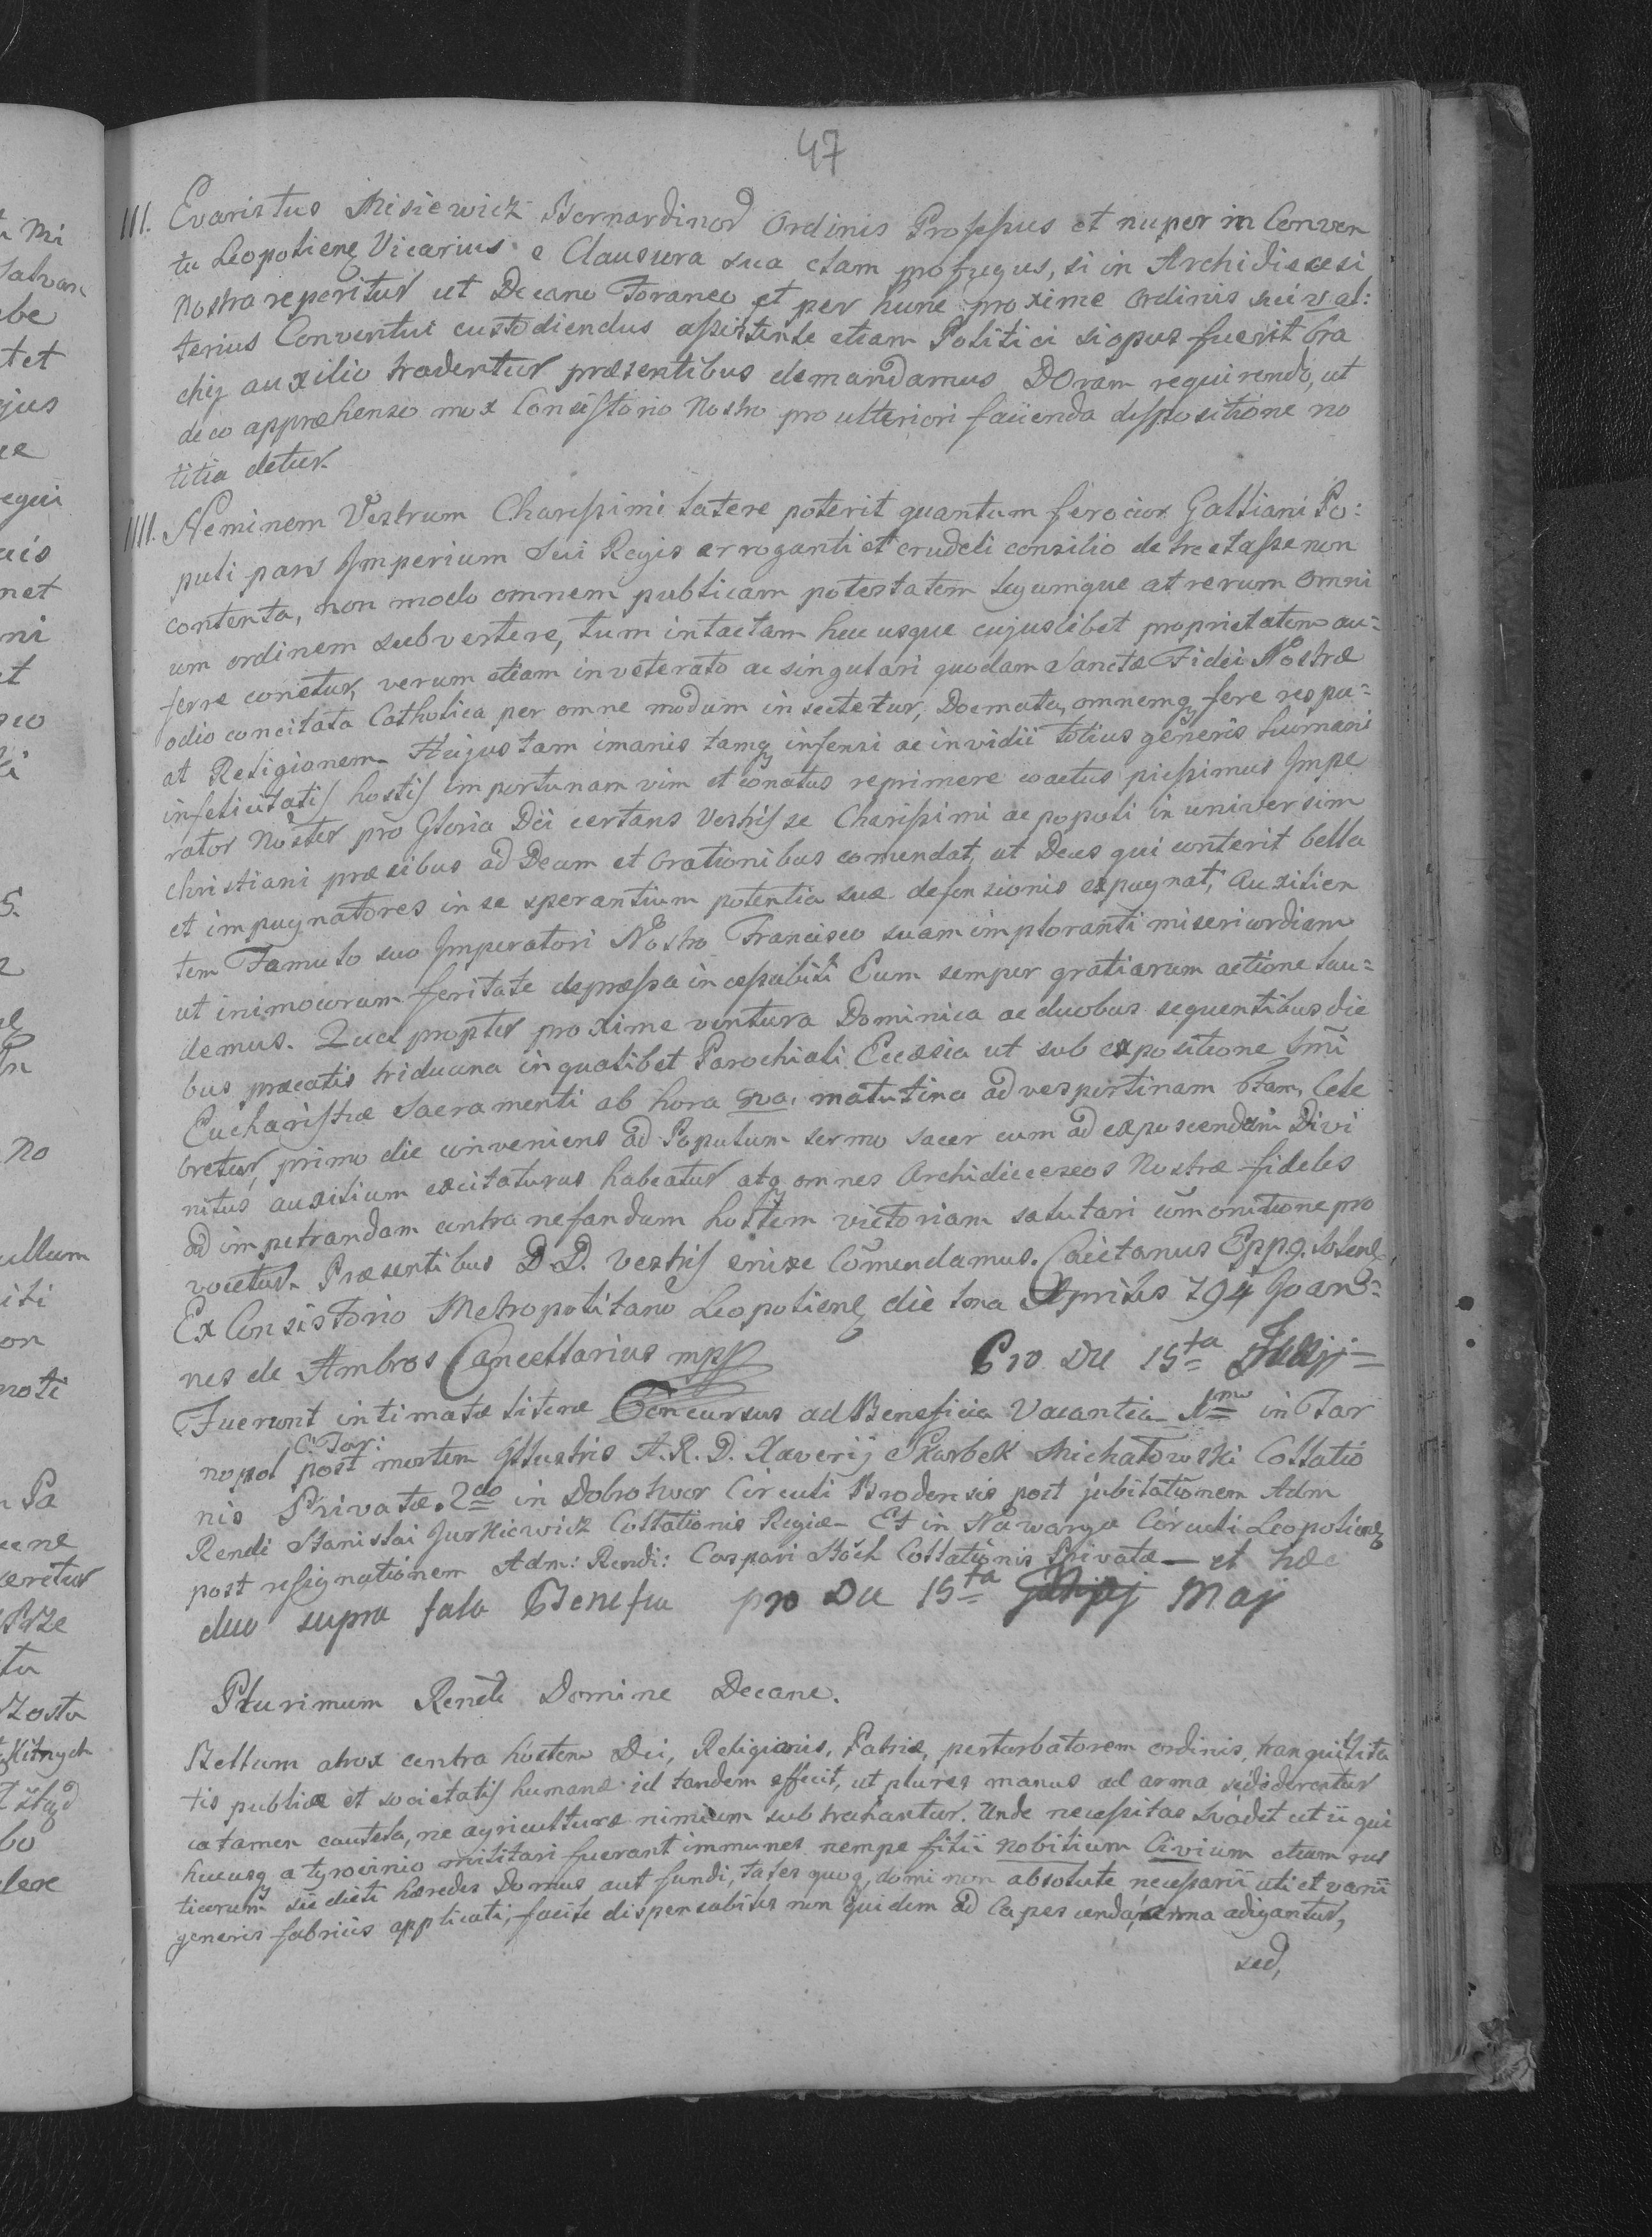 47
III. Evaristus Misiewicz Bernardinor Ordinis Professus et nuper in Conven
tu Leopoliens Vicarius e Clausura sua clam profugus, si in Archidiecesi
Nostra reperitur ut Decano Foraneo et per hunc proxime Ordinis sui v al:
terius Conventui custodiendus assistente etiam Politici si opus fuerit bra
chij auxilio tradentur præsentibus demandamus DDram requirendo, ut
de eo appræhenso mox Consistorio Nostro pro ulteriori facienda dispositione no
titia detur.
IIII. Neminem Vestrum Charissimi latere poterit quantum ferocior Galliani Po:
puli pars Imperium sui Regis arroganti et crudeli consilio detrectasse non
contenta, non modo omnem publicam potestatem legumque at rerum omni
um ordinem subvertere, tum intactam hucusque cujuslibet proprietatem au=
ferre conetur, verum etiam inveterato ac singulari quodam Sanctæ Fidei Nostræ
odio concitata Catholica per omne modum insectetur, Docmata, omnemq fere respu=
at Religionem. Hujus tam imanis tamq infensi ac invidii totius generis humani
infelicitatis hostis importunam vim et conatus reprimere coactus piissimus Impe
rator Noster pro Gloria Dei certans Vestris se Charissimi ac populi in universim
christiani præcibus ad Deum et Orationibus comendat, ut Deus qui conterit bella
et impugnatores in se sperantium potentia suæ defensionis expugnat, Auxilien
tem Famulo suo Imperatori Nostro Francisco suam imploranti misericordiam
ut inimicorum feritate depressa incessabili Eum semper gratiarum actione lau=
demus. Qua propter proxime ventura Dominica ac duobus sequentibus die
bus præcatio triduana in qualibet Parochiali Ecclesia ut sub expositione Smi
Eucharistiæ Sacramenti ab hora matutina ad vespertinam Cele
bretur, primo die conveniens ad Populum sermo sacer eum ad exposcendum Divi
nitus auxilium excitaturus habeatur atq omnes Archidieceseos Nostræ fideles
ad impetrandam contra nefandum hostem victoriam salutari comonitione pro
vocetur. Præsentibus D.D. vestris enixe Comendamus. Caietanus Epp.
Ex Consistorio Metropolitano Leopoliens die Aprilis 794 Joan=
nes de Ambros Cancellarius mpp Pro Die 15ta Junij
Fuerunt intimatæ literæ Concursus ad Beneficia Vacantia 1mo in Tar
C. Tar:
nopol post mortem Illustris A.R.D. Xaverij Skarbek Michałowski Collatio
nis Privatæ. 2do in Dobrotwor Circuli Brodensis post jubilationem Adm
Rendi Stanislai Jurkiewicz Collationis Regiæ. Et in Nawarya Circuli Leopoliens
post resignationem Adm: Rendi: Caspari Collationis Privatæ — et hæc
duo supra fata Benefia pro Die 15ta Maj
Plurimum Rende Domine Decane.
Bellum atrox contra hostem Dei, Religionis, Patriæ, perturbatorem ordinis, tranquillita
tis publicæ et societatis humanæ id tandem effecit, ut plures manus ad arma
ea tamen cautela, ne agriculturæ nimium subtrahantur. Unde necessitas svadet ut ii qui
hucusq a tyrocinio militari fuerant immunes nempe filii nobilium Civium etiam rus
ticorum sic dicti hæredes Domus aut fundi, tales quoq domi non absolute necessarii uti et varii
generis fabriciis applicati, facile dispensabiles non quidem ad Capescenda arma adigantur,
sed,